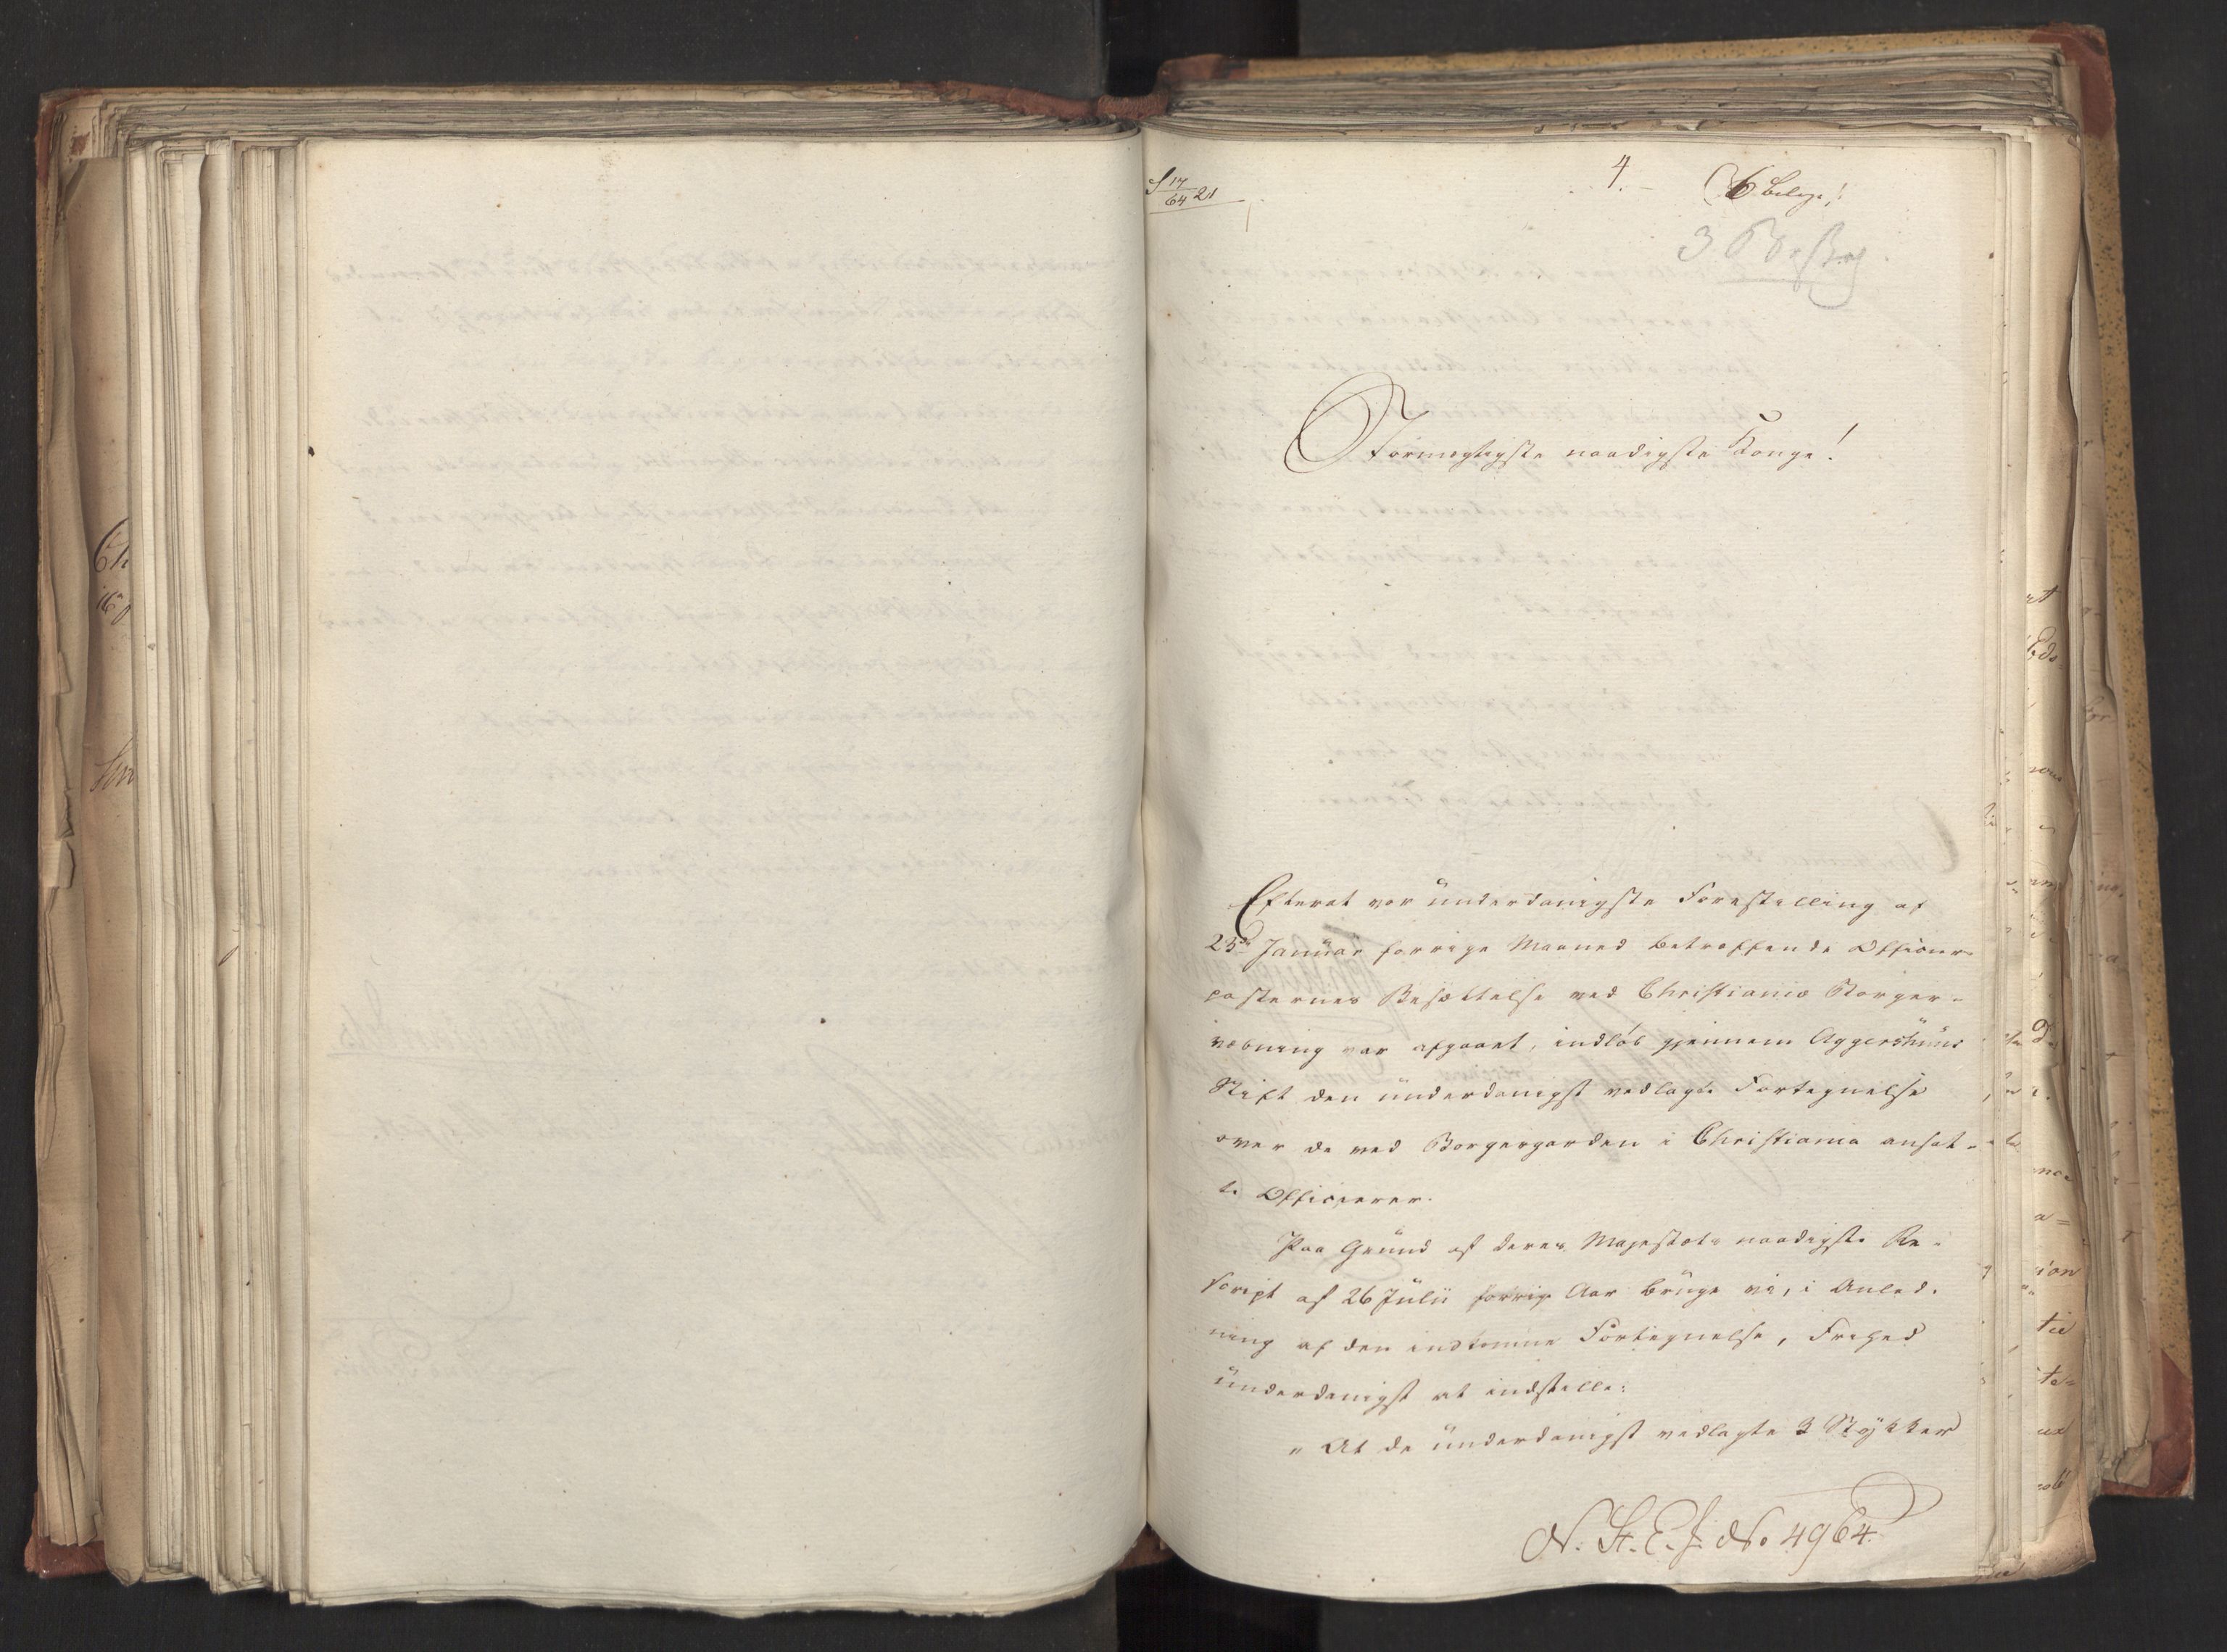 S 17/64 21
4. (6 bilage!
3
Stormægtigste naadigste Konge!
Efterat vor underdanigste Forestelling af
25de Januar forrige Maaned betreffende Officeer-
posternes Besættelse ved Christiania Borger-
væbning var afgaaet, indløb gjennem Aggershuus
Stift den underdanigst vedlagte Fortegnelse
over de ved Borgergarden i Christiania ansat-
te Officierer.
Paa Grund af Deres Majestæts naadigste Re-
script af 26 Julii forrige Aar bruge vi, i Anled-
ning af den indkomne Fortegnelse, Frihed
underdanigst at indstille:
„At de underdanigst vedlagte 3 Stykker
N. St. E. J. No 4964.